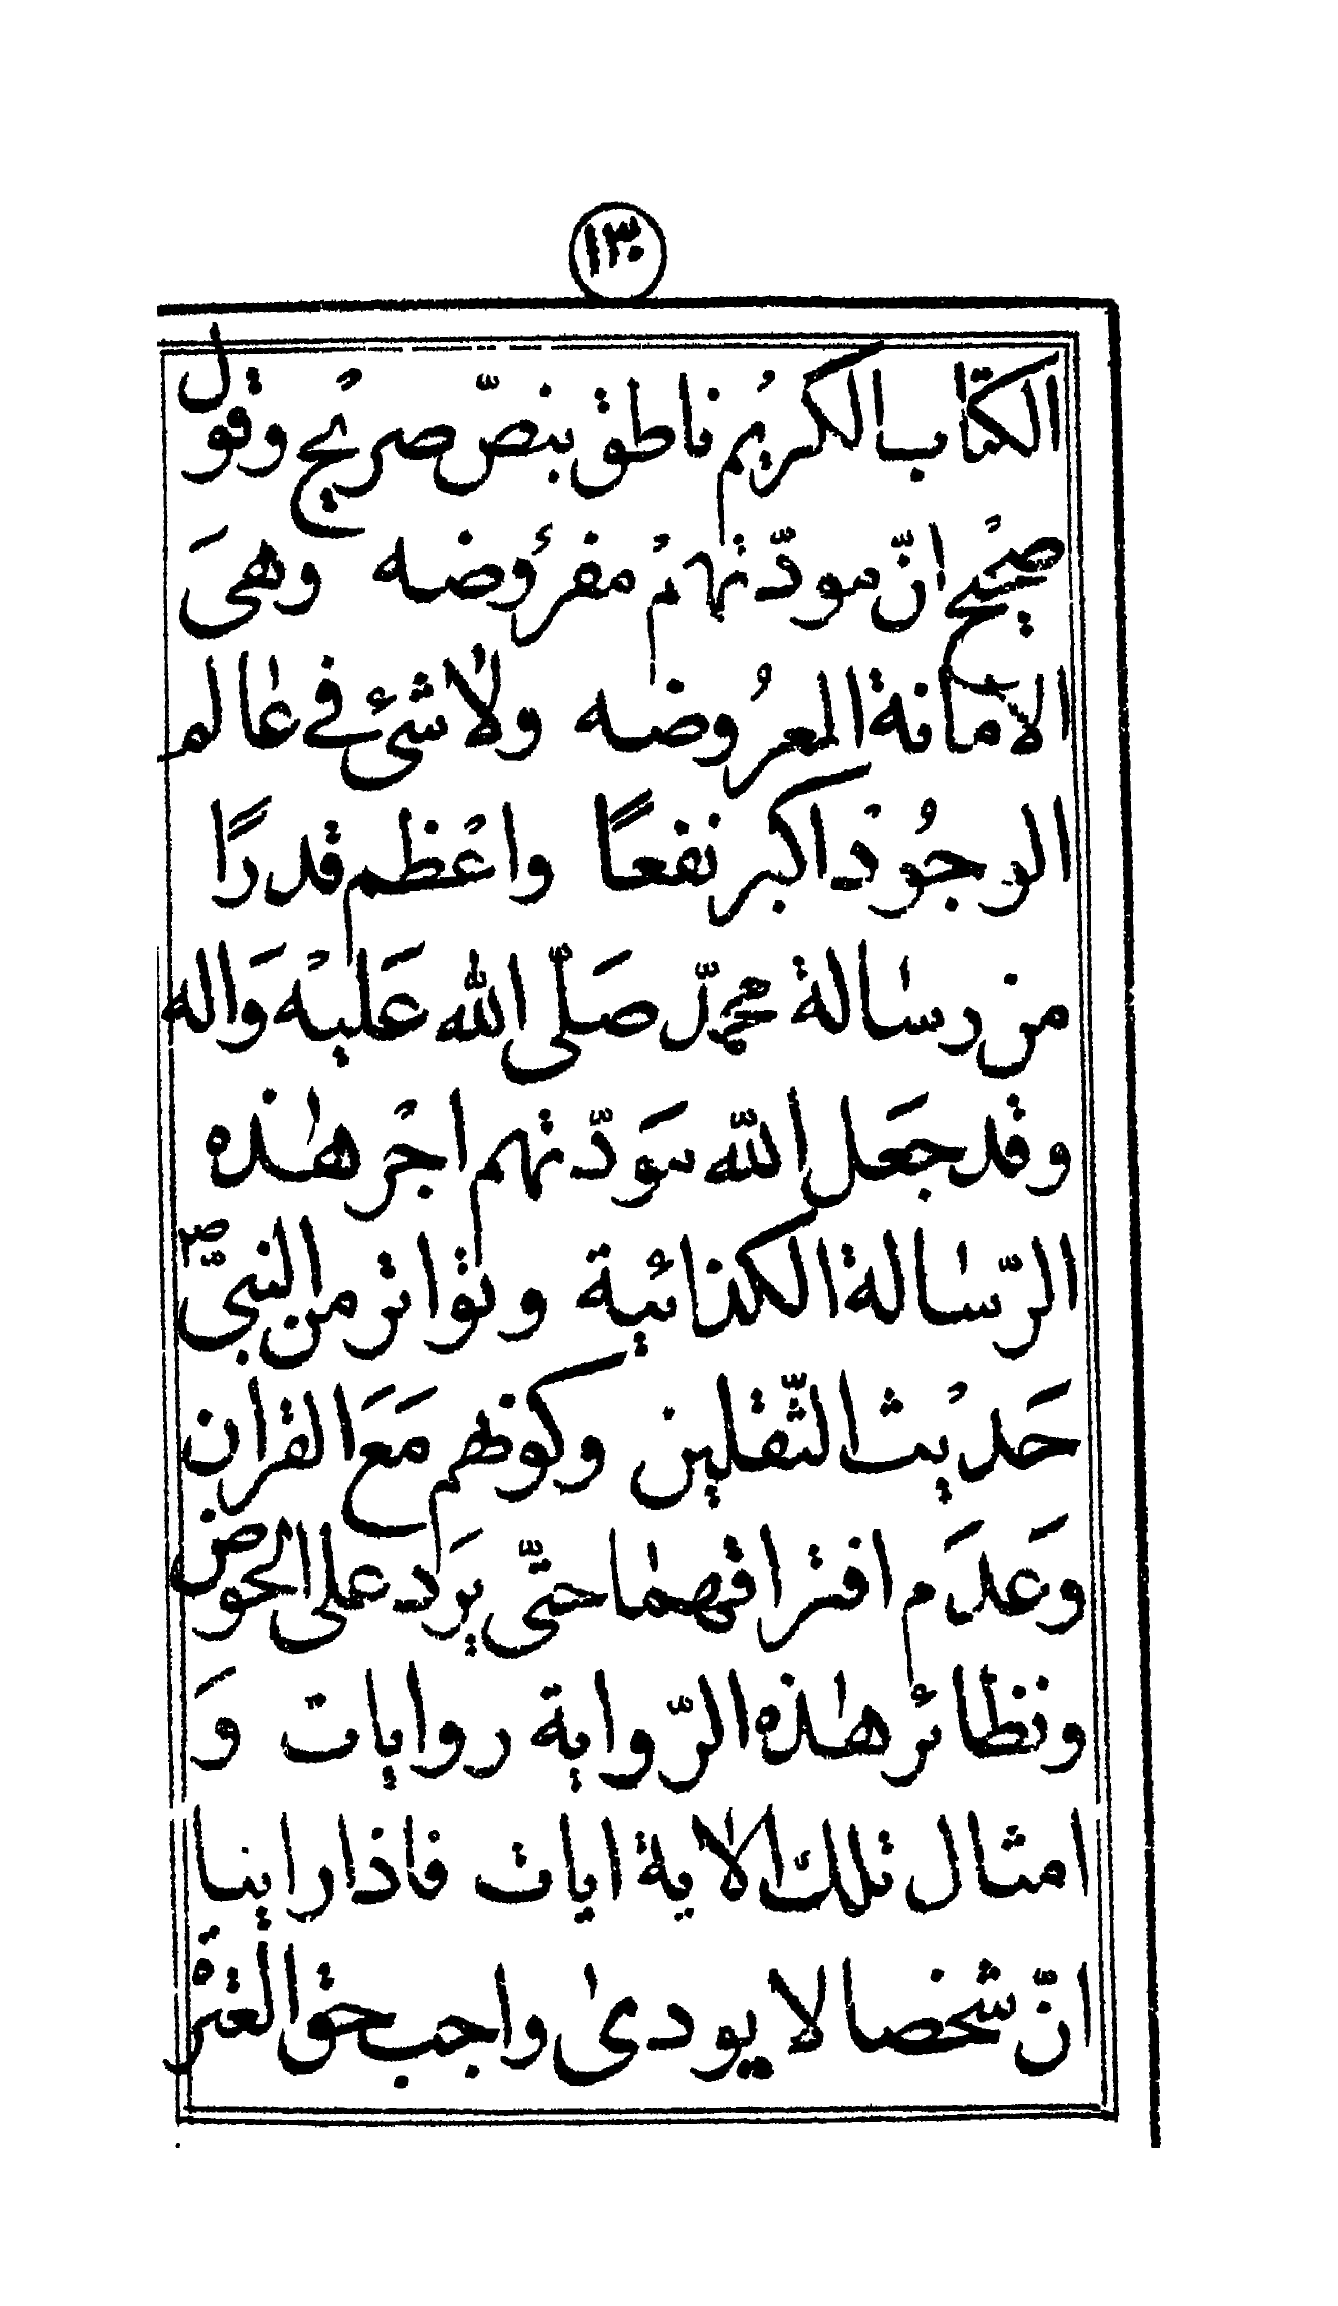 ١٣
الكتاب الكريم ناطق بنصّ صريح وقول
صحيح انّ مودّتهم مفروضه وهى
الامانة المعروضه ولا شئ في عالم
الوجود اكبر نفعًا واعظم قدرًا
من رسالة محمدّ صَلّى الله عَليه وَاله
وقد جعَل الله موَدّتهم اجر هٰذه
الرّسالة الكذائية وتواتر من النبىّ ص
حَديث الثّقلين وكونهم مَعَ القران
وَعدَم افتراقهما حتّى يرَد على الحوض
ونظائر هٰذه الرّواية روايات وَ
امثال تلك الاية ايات فاذا راينا
انّ شخصا لا يودى واجب حق العترة